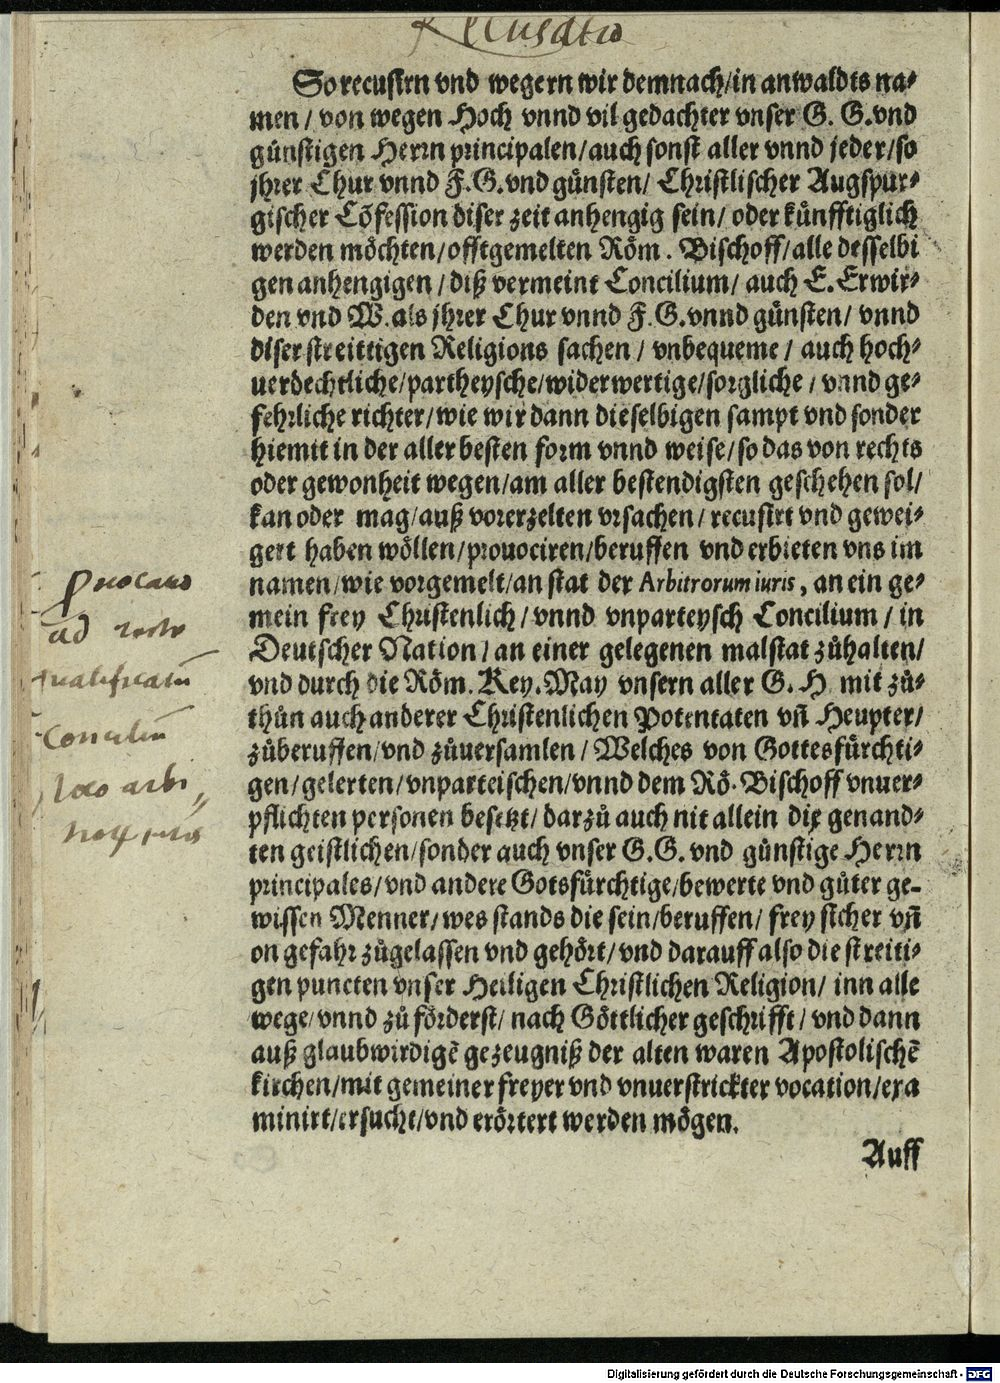 Recusatio
So recusirn vnd wegern wir demnach/in anwaldts na-
men / von wegen Hoch vnnd vil gedachter vnser G. G. vnd
günstigen Herrn principalen/auch sonst aller vnnd jeder/so
jhrer Chur vnnd F.G. vnd günsten/ Christlischer Augspur-
gischer Cõfession diser zeit anhengig sein/ oder künfftiglich
werden möchten/offtgemelten Röm. Bischoff/alle desselbi
gen anhengigen / diß vermeint Concilium/ auch E. Erwir-
den vnd W. als jhrer Chur vnnd F.G. vnnd günsten/ vnnd
diser streittigen Religions sachen / vnbequeme / auch hoch-
uerdechtliche/partheysche/widerwertige/sorgliche / vnnd ge-
fehrliche richter/wie wir dann dieselbigen sampt vnd sonder
hiemit in der aller besten form vnnd weise/so das von rechts
oder gewonheit wegen/am aller bestendigsten geschehen sol/
kan oder mag/auß vorerzelten vrsachen/ recusirt vnd gewei-
gert haben wöllen/prouociren/beruffen vnd erbieten vns im
namen/wie vorgemelt/an stat der Arbitrorum iuris, an ein ge-
mein frey Christenlich/vnnd vnparteysch Concilium / in
Deutscher Nation/an einer gelegenen malstat zůhalten/
vnd durch die Röm. Key. May vnsern aller G. H mit zů-
thůn auch anderer Christenlichen Potentaten vñ Heupter/
zůberuffen/vnd zůuersamlen / Welches von Gottesfürchti-
gen/gelerten/vnparteischen/vnnd dem Rö. Bischoff vnuer-
pflichten personen besetzt/darzů auch nit allein die genand-
ten geistlichen/sonder auch vnser G.G. vnd günstige Herrn
principales/vnd andere Gotsfürchtige/bewerte vnd gůter ge-
wissen Menner/wes stands die sein/beruffen/ frey sicher vñ
on gefahr zůgelassen vnd gehört/vnd darauff also die streiti-
gen puncten vnser Heiligen Christlichen Religion/ inn alle
wege/vnnd zů förderst/ nach Göttlicher geschrifft/ vnd dann
auß glaubwirdigẽ gezeugniß der alten waren Apostolischẽ
kirchen/mit gemeiner freyer vnd vnuerstrickter vocation/exa
minirt/ersucht/vnd erörtert werden mögen.
Auff
Prouocatio
ad recte
qualificatum
Concilium
loco arbi